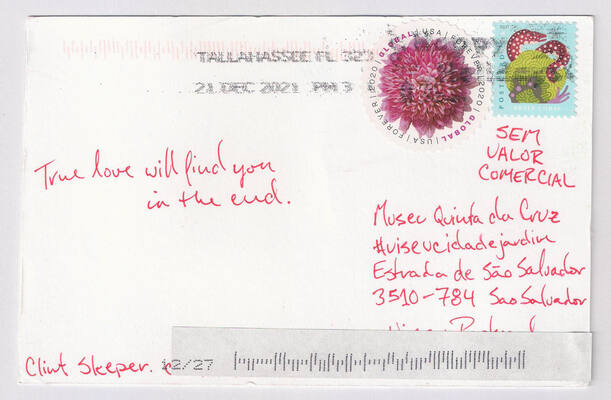 TALLAHASSEE FL 323
21 DEC 2021 PM 3
GLOBAL | USA | FOREVER | 2020
GLOBAL | USA | FOREVER | 2020
SEM
VALOR
COMERCIAL
True love will find you
in the end.
Museu Quinta da Cruz
#viseucidadejardim
Estrada de São Salvador
3510-784 Sao Salvador
Clint Sleeper.
12/27